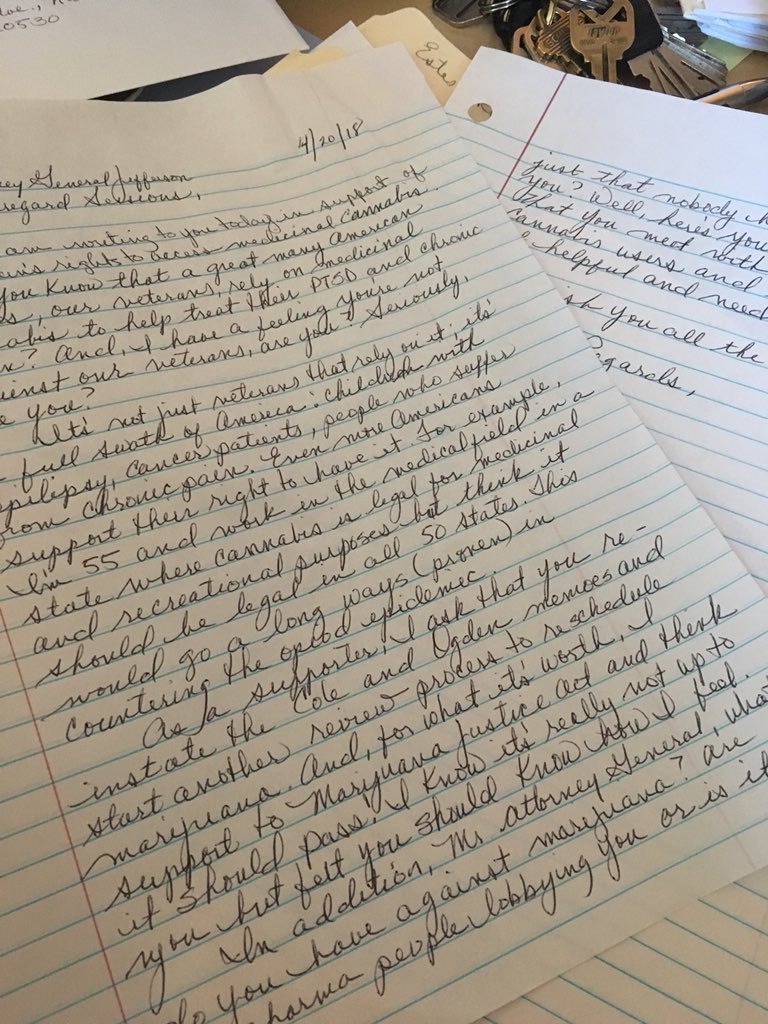 oe.,
0530
Estes
4/20/18
ney General Jefferson
regard Sessions,
am writing to you today in support of
rights to access medicinal cannabis.
you know that a great many American
s, our veterans, rely on medicinal
abis to help treat their PTSD and chronic
n? And, I have a feeling you're not
inst our veterans, are you? Seriously,
e you?
It's not just veterans that rely on it; it's
full swath of America: children with
epilepsy, cancer patients, people who suffer
from chronic pain. Even more Americans
support their right to have it. For example,
I'm 55 and work in the medical field in a
state where cannabis is legal for medicinal
and recreational purposes but think it
should be legal in all 50 states. This
would go a long ways (proven) in
countering the opiod epidemec.
As a supporter, I ask that you re-
instate the Cole and Ogden memoes and
start another review process to reschedule
marijuana. And, for what it's worth, I
support to Marijuana Justice Act and think
it should pass. I know it's really not up to
you but felt you should know how I feel.
In addition, Mr Attorney General, what
do you have against marijuana? Are
harma people lobbying you or is it
just that nobody h
you? Well, here's you
that you meet with
cannabis users and
helpful and need
sh you all the
egards,